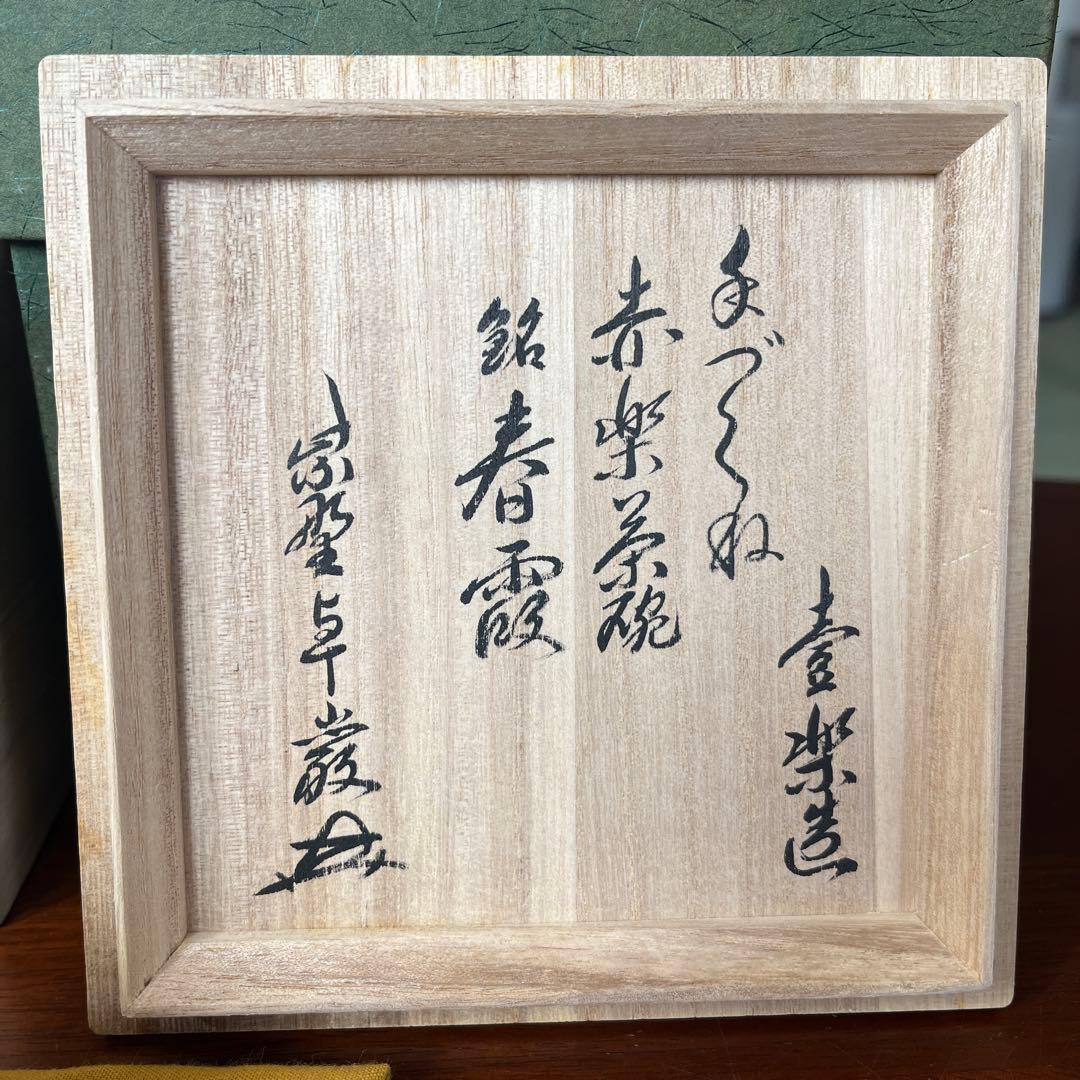 壹楽造
手づくね
赤楽茶碗
銘 春霞
卓巌